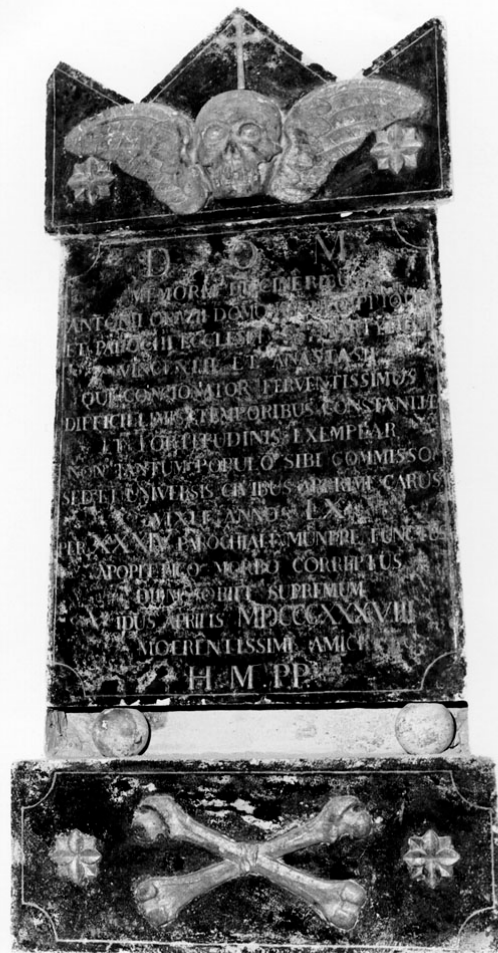 D O M
MEMORIAE ET CINERIBUS
ANTONII ONIZII DOMO
ET PAROCHI ECCLESIAE MARTYRUM
VINCENTII ET ANASTASII
QUI CONCIONATOR FERVENTISSIMUS
DIFFICILLIMIS TEMPORIBUS CONSTANTIAE
ET FORTITUDINIS EXEMPLAR
NON TANTUM POPULO SIBI COMMISSO
SED ET UNIVERSIS CIVIBUS APPRIME CARUS
VIXIT ANNOS LX
PER XXXIV PAROCHIALE MUNERE FUNCTUS
APOPLETICO MORBO CORREPTUS
DIEM OBIIT SUPREMUM
IDUS APRILIS MDCCCXXXVIII
MOERENTISSIMI AMICI
H. M. PP.